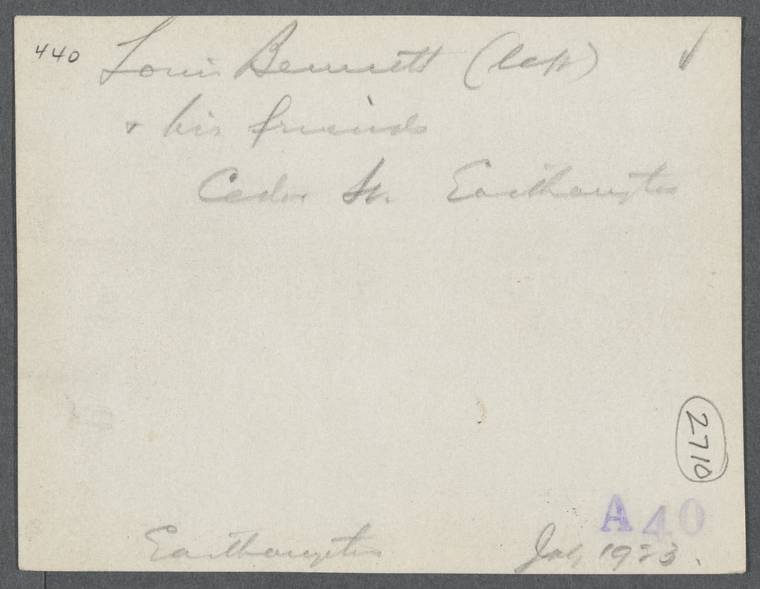 440 Louis Bennett (left)
+ his friends
Cedar St. Easthampton
2710
A40
Easthampton July 1933.